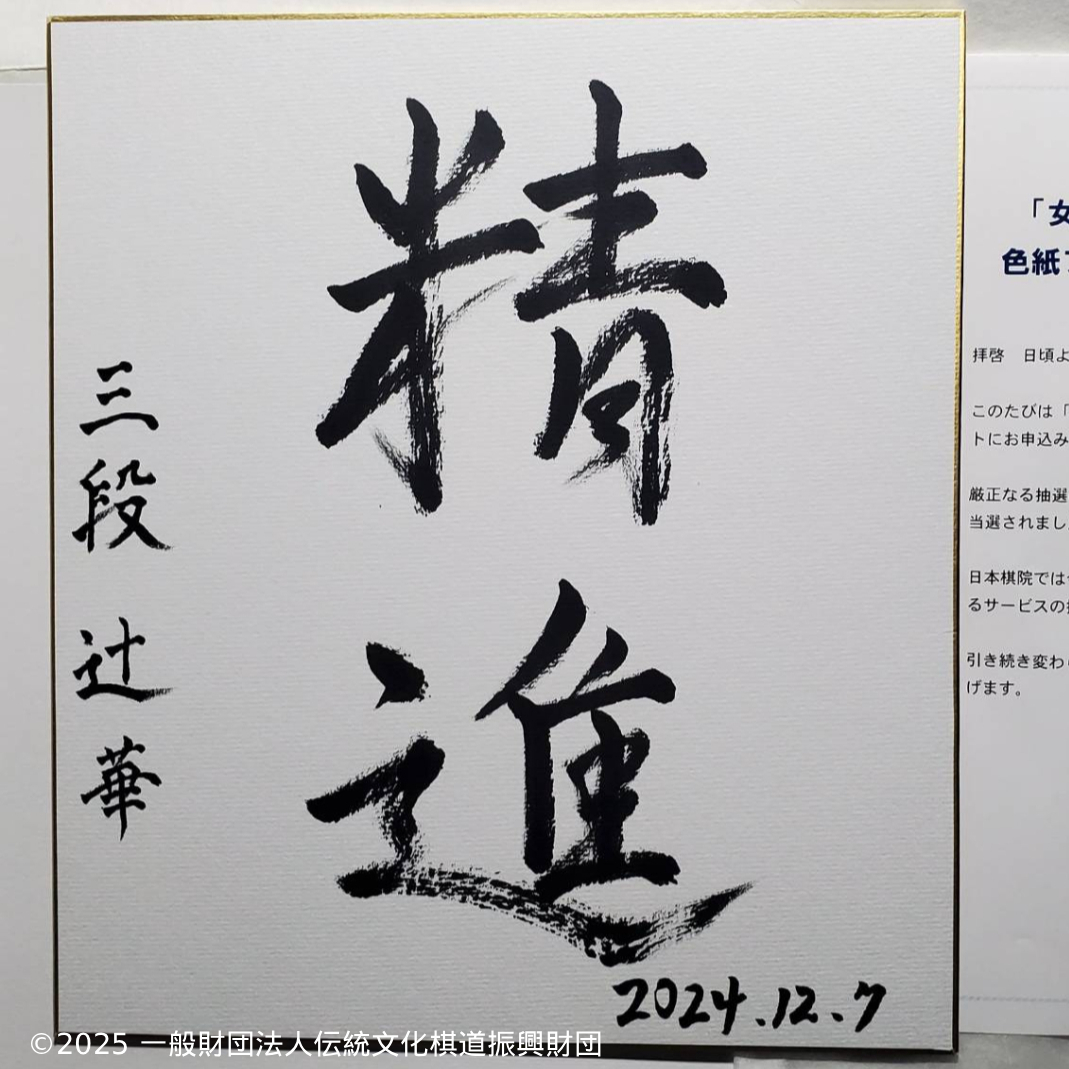 精進
三段 辻 華
2024.12.7
「女
色紙
拝啓 日頃よ
このたびは「
トにお申込み
厳正なる抽選
当選されまし
日本棋院では
るサービスの
引き続き変わ
げます。
©2025 一般財団法人伝統文化棋道振興財団